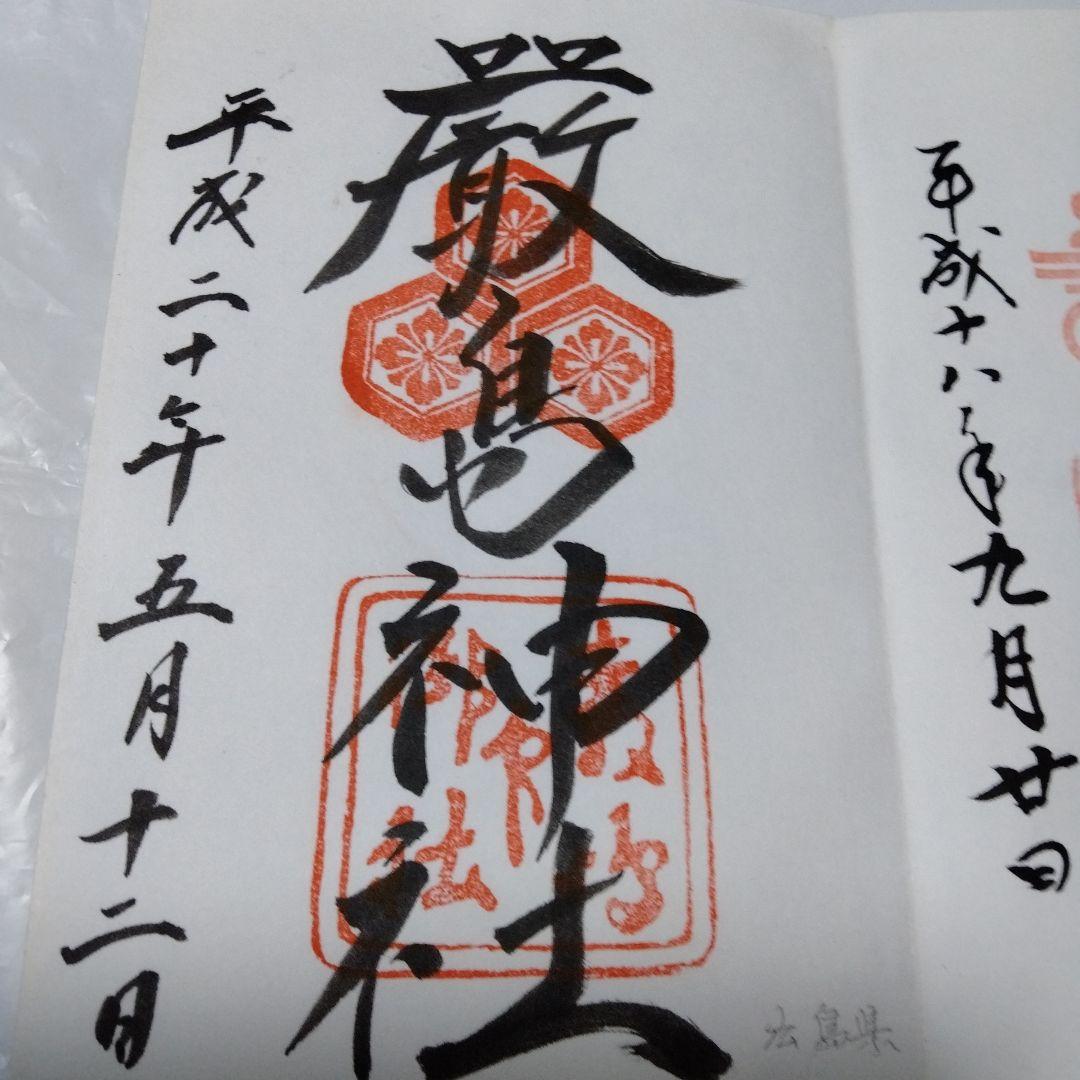 平成十八年九月廿日
嚴島神社
平成二十年五月十二日
広島県